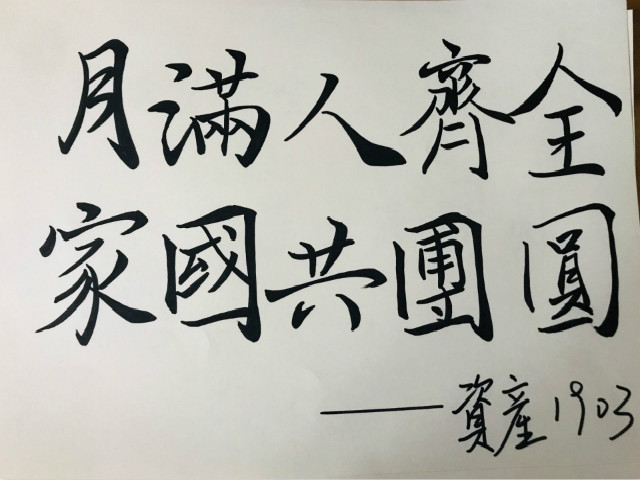 月滿人齊全
家國共團圓
——資產1903